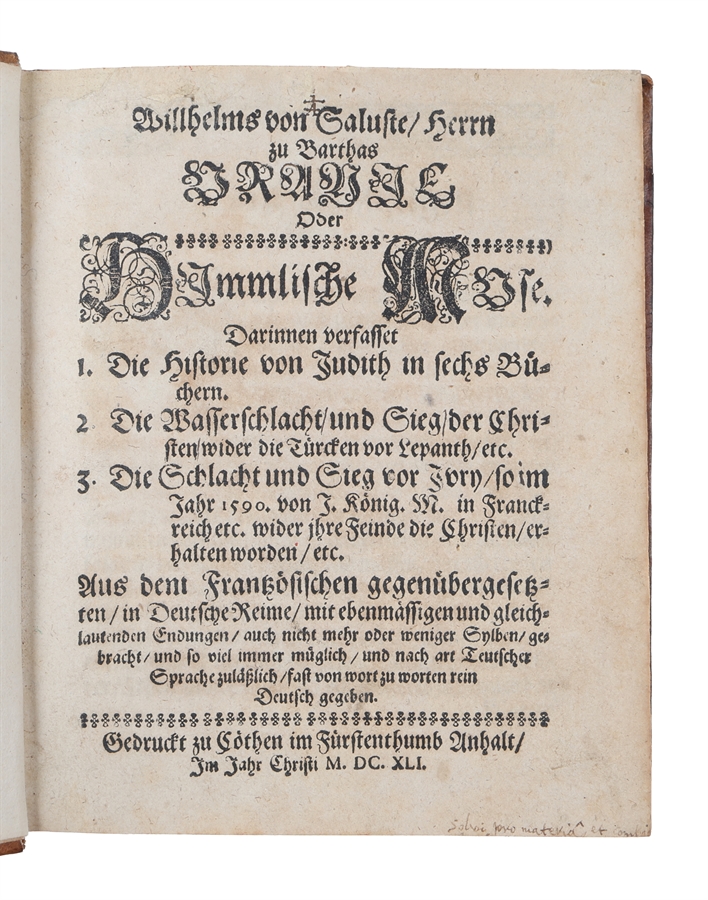 Willhelms von Saluste/ Herrn
zu Barthas
VRANJE
Oder
HJmmlische MVse.
Darinnen verfasset
1. Die Historie von Judith in sechs Bü-
chern.
2 Die Wasserschlacht/und Sieg/der Chri-
sten/wider die Türcken vor Lepanth/etc.
3. Die Schlacht und Sieg vor Jvry/so im
Jahr 1590. von J. König. M. in Franck-
reich etc. wider jhre Feinde die Christen/er-
halten worden/etc.
Aus dem Frantzösischen gegenübergesetz-
ten/in Deutsche Reime/mit ebenmässigen und gleich-
lautenden Endungen/auch nicht mehr oder weniger Sylben/ge-
bracht/und so viel immer müglich/und nach art Teutscher
Sprache zuläßlich/fast von wort zu worten rein
Deutsch gegeben.
Gedruckt zu Cöthen im Fürstenthumb Anhalt/
Im Jahr Christi M. DC. XLI.
pro materia et